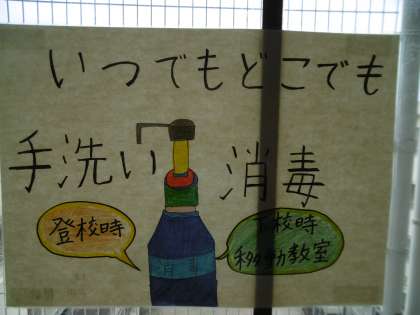 いつでもどこでも
手洗い 消毒
登校時
下校時
移動教室